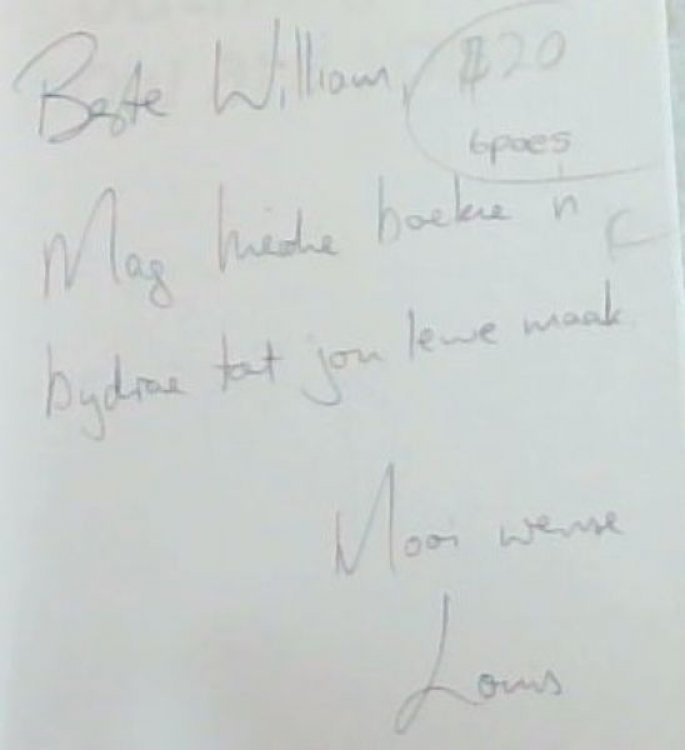 Beste William,
$20
6poes
Mag hierdie boekie 'n
bydrae tot jou lewe maak
Mooi wense
Louis